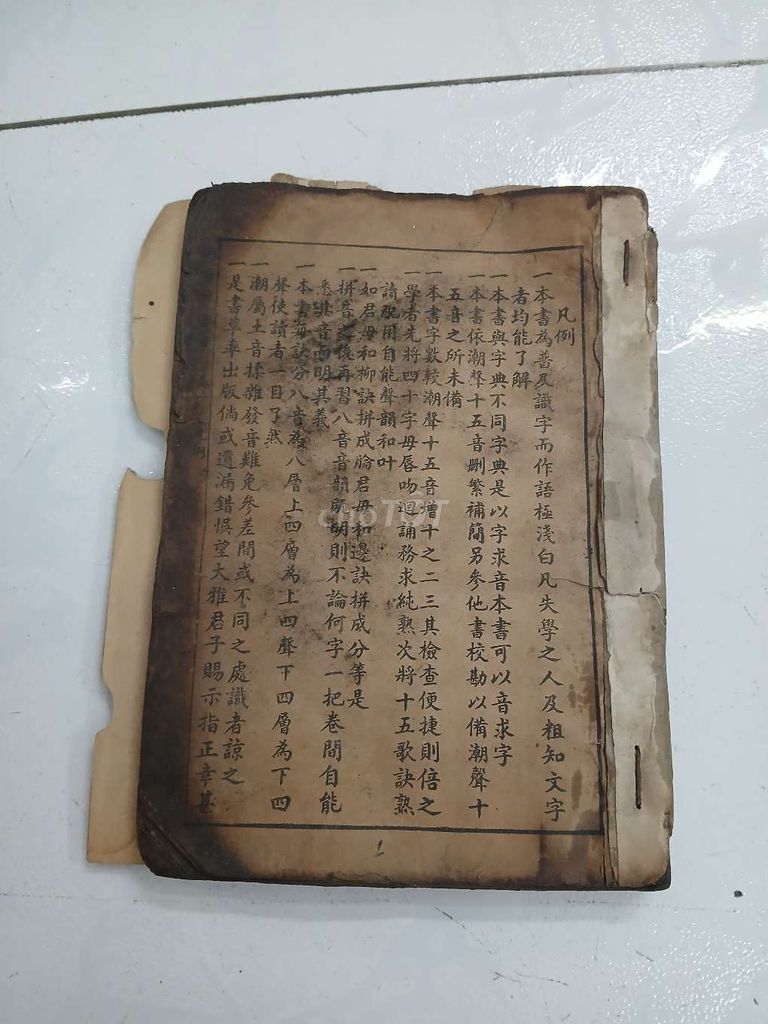 凡例
一本書為普及識字而作語極淺白凡失學之人及粗知文字
者均能了解
一本書與字典不同字典是以字求音本書可以音求字
一本書依潮聲十五音刪繁補簡另參他書校勘以備潮聲十
五音之所未備
一本書字數較潮聲十五音增十之二三其檢查便捷則倍之
一學者先將四十字母唇吻迴誦務求純熟次將十五歌訣熟
讀配用自能聲韻和叶
一如君母和柳訣拼成腀君母和邊訣拼成分等是
一拼音之後再習八音音韻既明則不論何字一把卷間自能
悉其音而明其義
一本書每訣分八音為八層上四層為上四聲下四層為下四
聲使讀者一目了然
一潮屬土音揉雜發音雖免參差間或不同之處識者諒之
一是書草率出版倘或遺漏錯悞望大雅君子賜示指正幸甚
例
1
choTỐT